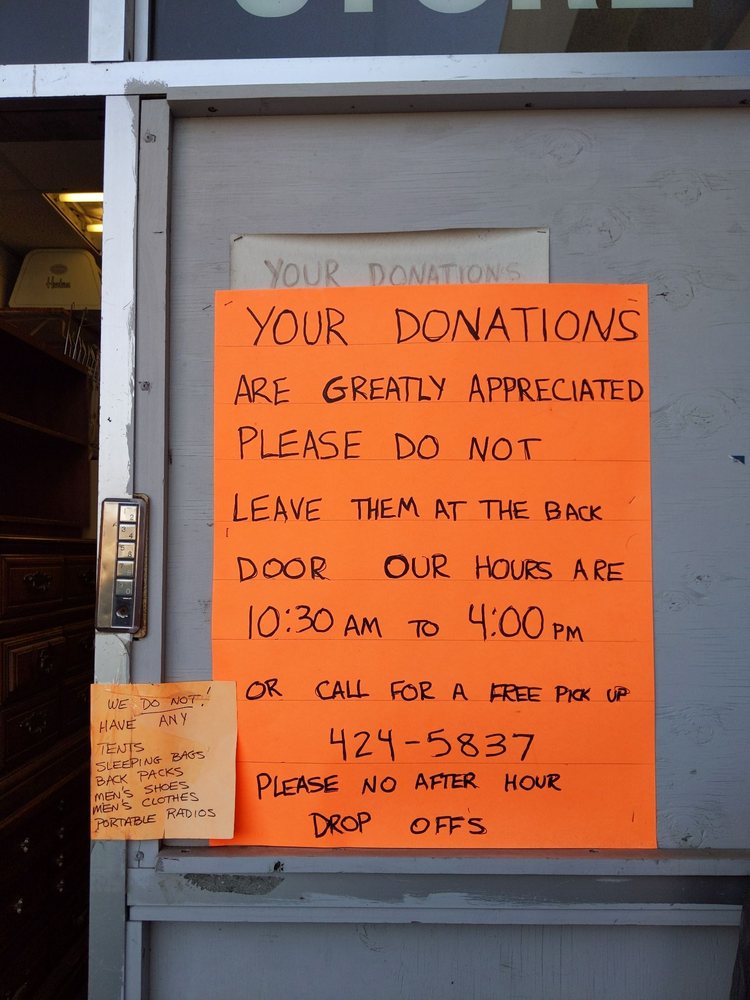 STORE
YOUR DONATIONS
YOUR DONATIONS
ARE GREATLY APPRECIATED
PLEASE DO NOT
LEAVE THEM AT THE BACK
DOOR OUR HOURS ARE
10:30 AM TO 4:00 PM
OR CALL FOR A FREE PICK UP
424-5837
PLEASE NO AFTER HOUR
DROP OFFS
WE DO NOT!
HAVE ANY
TENTS
SLEEPING BAGS
BACK PACKS
MEN'S SHOES
MEN'S CLOTHES
PORTABLE RADIOS